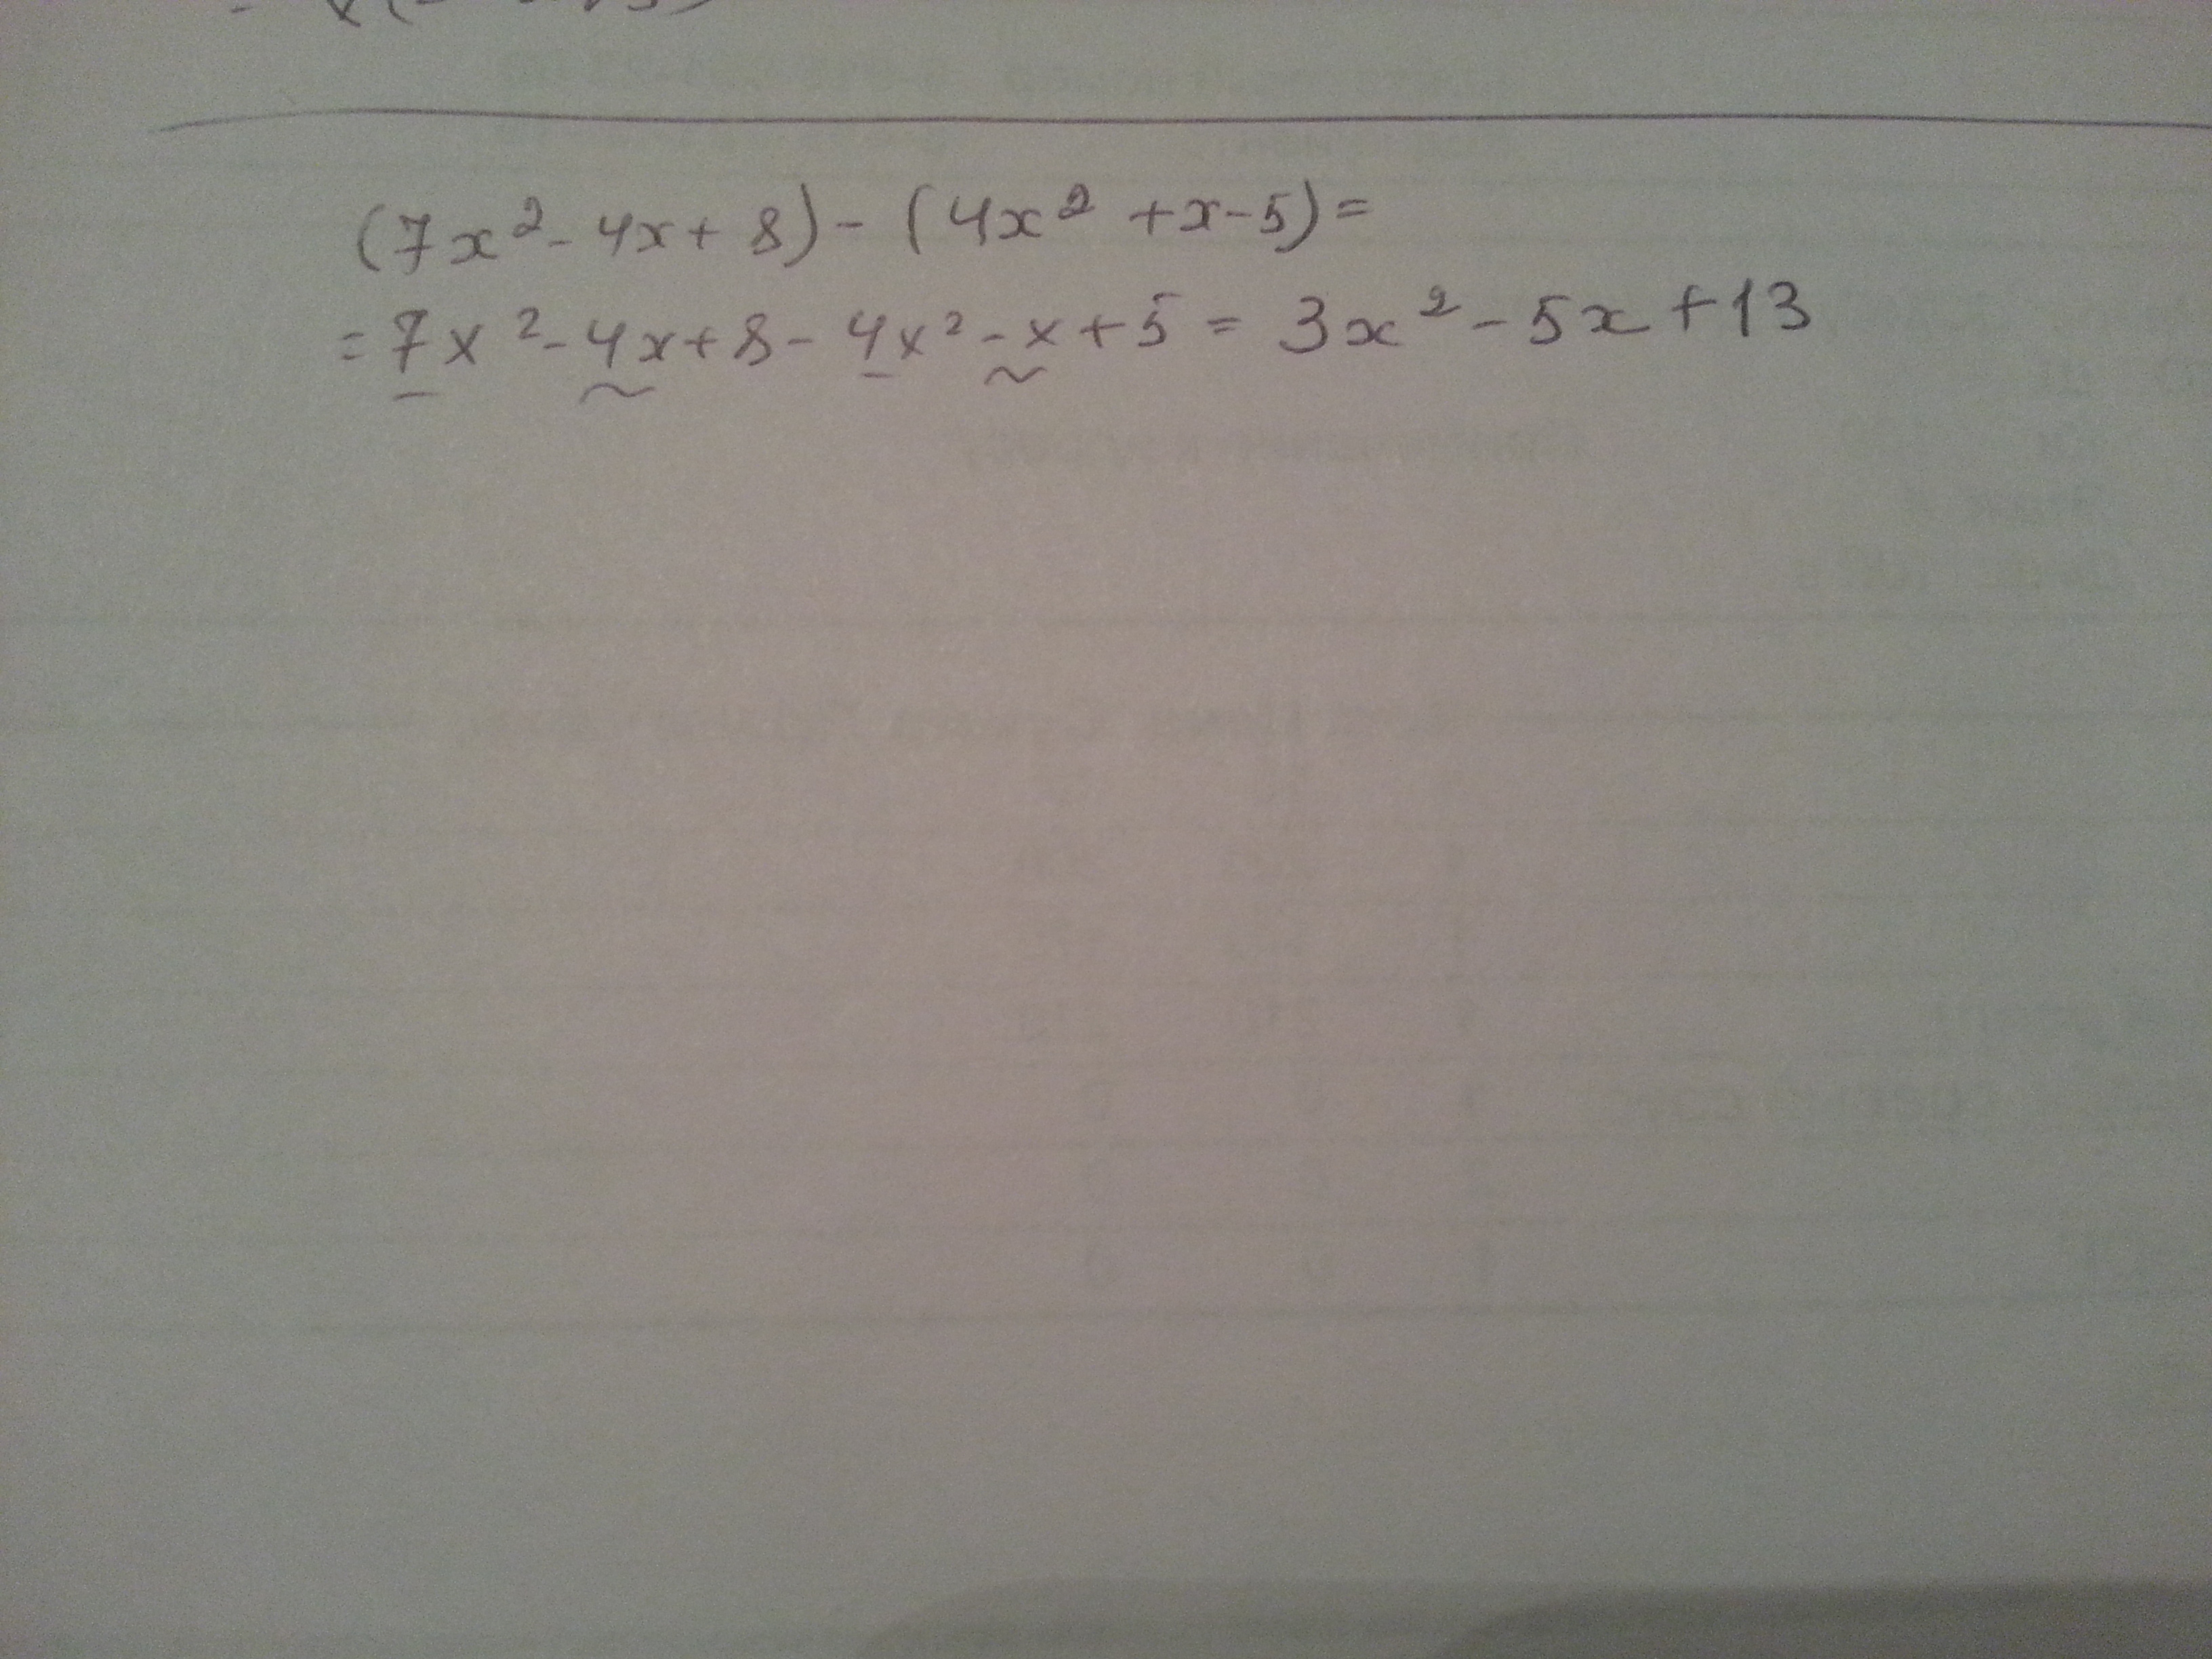 (7x² - 4x + 8) - (4x² + x - 5) =
= 7x² - 4x + 8 - 4x² - x + 5 = 3x² - 5x + 13